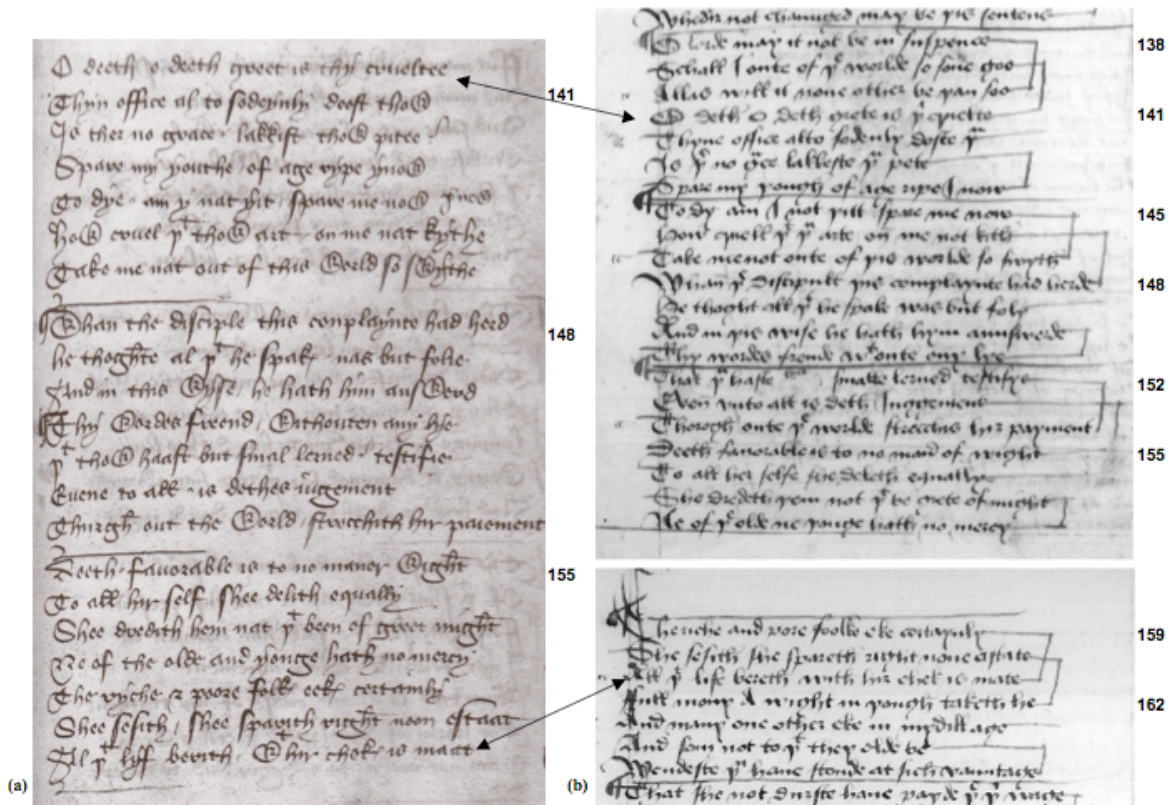 O deeth o deeth greet is thy crueltee
Thyn office al to sodeynly doost thow
Is ther no grace . lakkist thow pitee .
Spare my youthe / of age rype ynow
To dye . am y nat yit / spare me now
How cruel þt thow art . on me nat kythe
Take me nat out of this world so swythe
Whan the disciple this conplaynte had herd
he thoghte al þt he spak / nas but folie
And in this wyse / he hath him answerd
Thy wordes freend / withouten any lye
þt thow haast but smal lerned . testifie
Euene to all . is dethes iuggement
Thurgh out the world / strecchith hir paiement
Deeth . fauorable is to no maner wight
To all hir self shee delith equally
Shee dredith hem nat þt been of greet might
Ne of the olde and yonge hath no mercy
The ryche & poore folk eek certainly
Shee sesith / shee sparith right noon estaat
Al þt lyff berith . whir chek is maat
(a)
141
148
155
Whedir not chaunged may be þis sentens
O lorde may it not be in suspence
Schall I oute of þe worlde so sone goo
Allas will it none other be þan soo
O deth O deth grete is þi cruelte
Thyne office alto sodenly doste þu
Is þer no grace lakkeste þu pete
Spare my yough of age ripe I now
To dy am I not yitt spare me now
How cruell þt þu arte on me not kith
Take me not oute of þis worlde so swyth
Whan þe discipule þis complaynte had herde
He thoght all þt he spake was but foly
And in þis wise he hath hym answerde
Thy wordes frende wt oute ony lye
That þu haste but smalle lerned testifye
Even vnto all is deth Iuggement
Thorogh oute þe worlde streccus hir payment
Deeth favorable is to no maner of wight
To all her selfe she deleth equally
She dredeth þem not þt be grete of might
Ne of þe olde ne yonge hath no mercy
The riche and pore foolke eke certaynly
She sesith she spareth right none astate
All þt life bereth with hir chek is mate
Full mony A wight in yough taketh he
And many one other eke in myddill age
And som not to þt they olde be
Wendeste þu haue stonde at sich vauntage
That she not durste haue payde þe þi wage
138
141
145
148
152
155
159
162
(b)